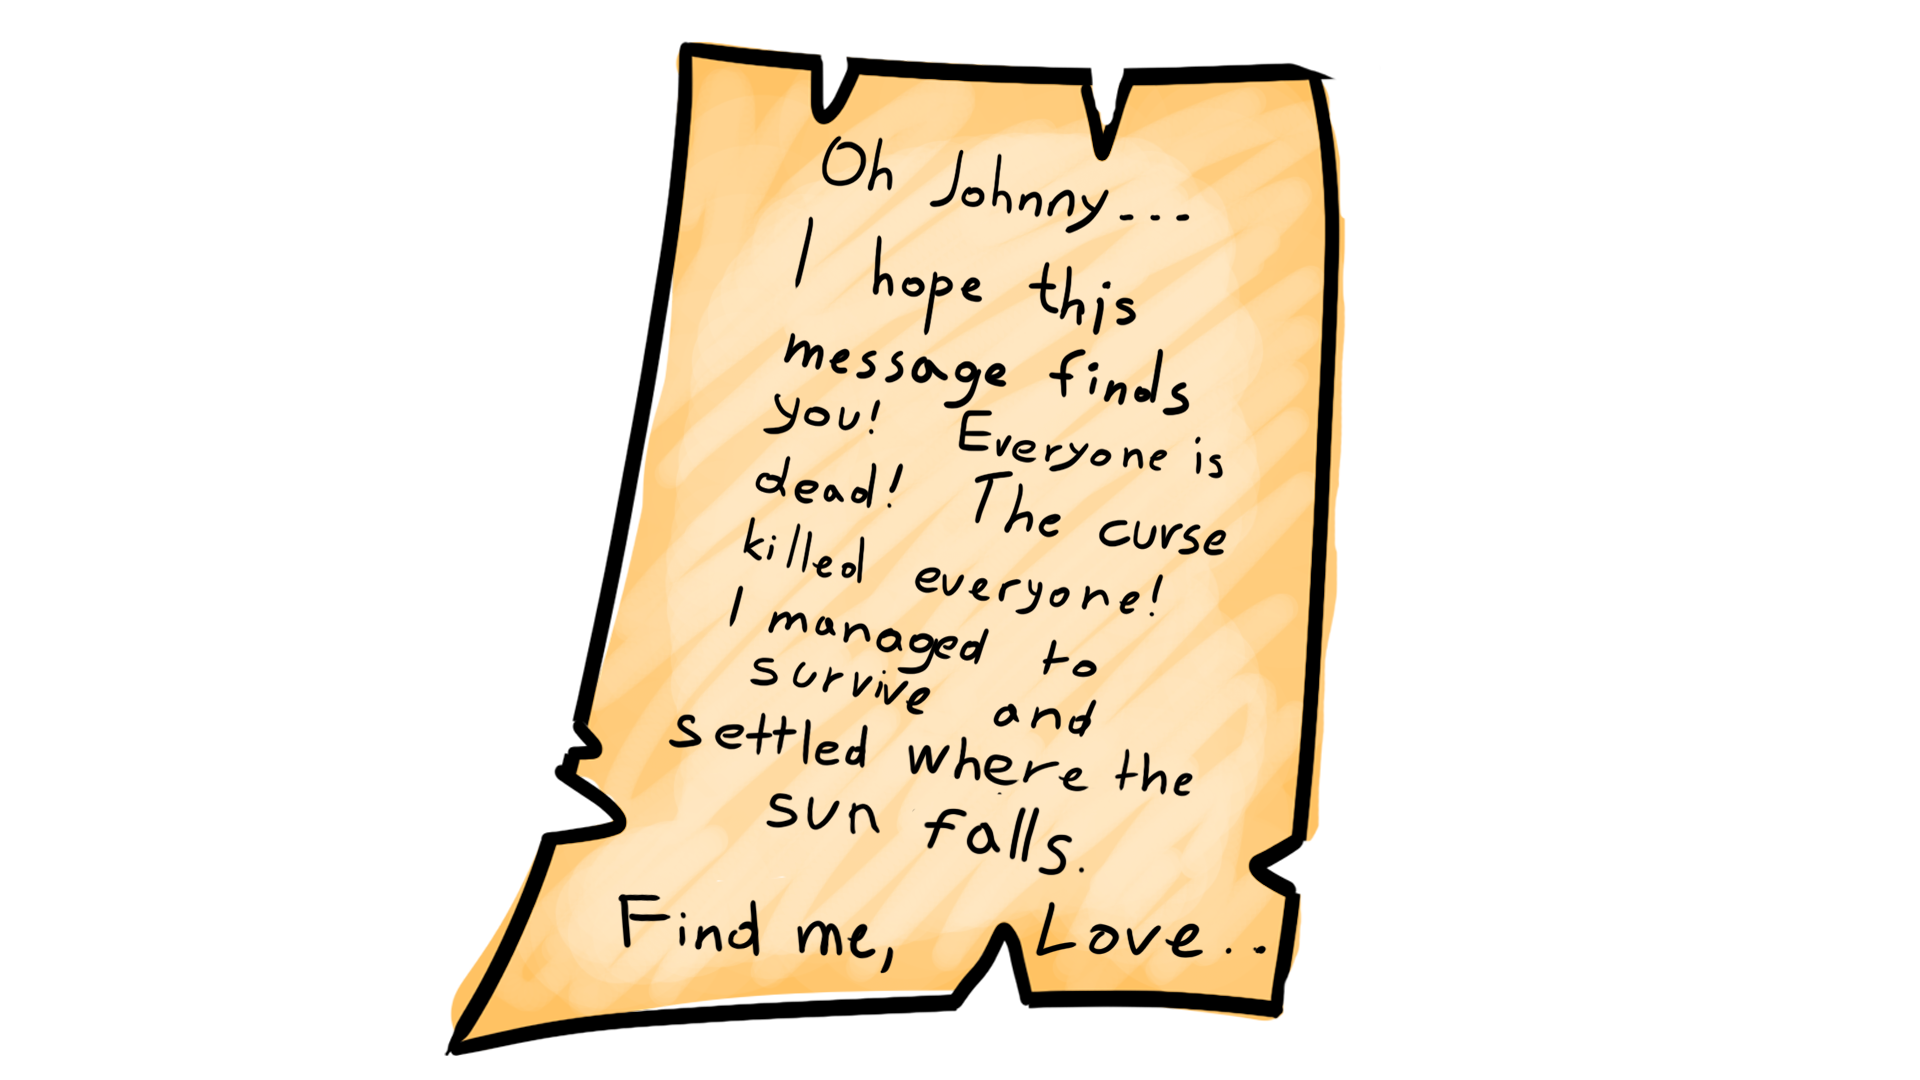 Oh Johnny...
I hope this
message finds
you! Everyone is
dead! The curse
killed everyone!
I managed to
survive and
settled where the
sun falls.
Find me, Love..